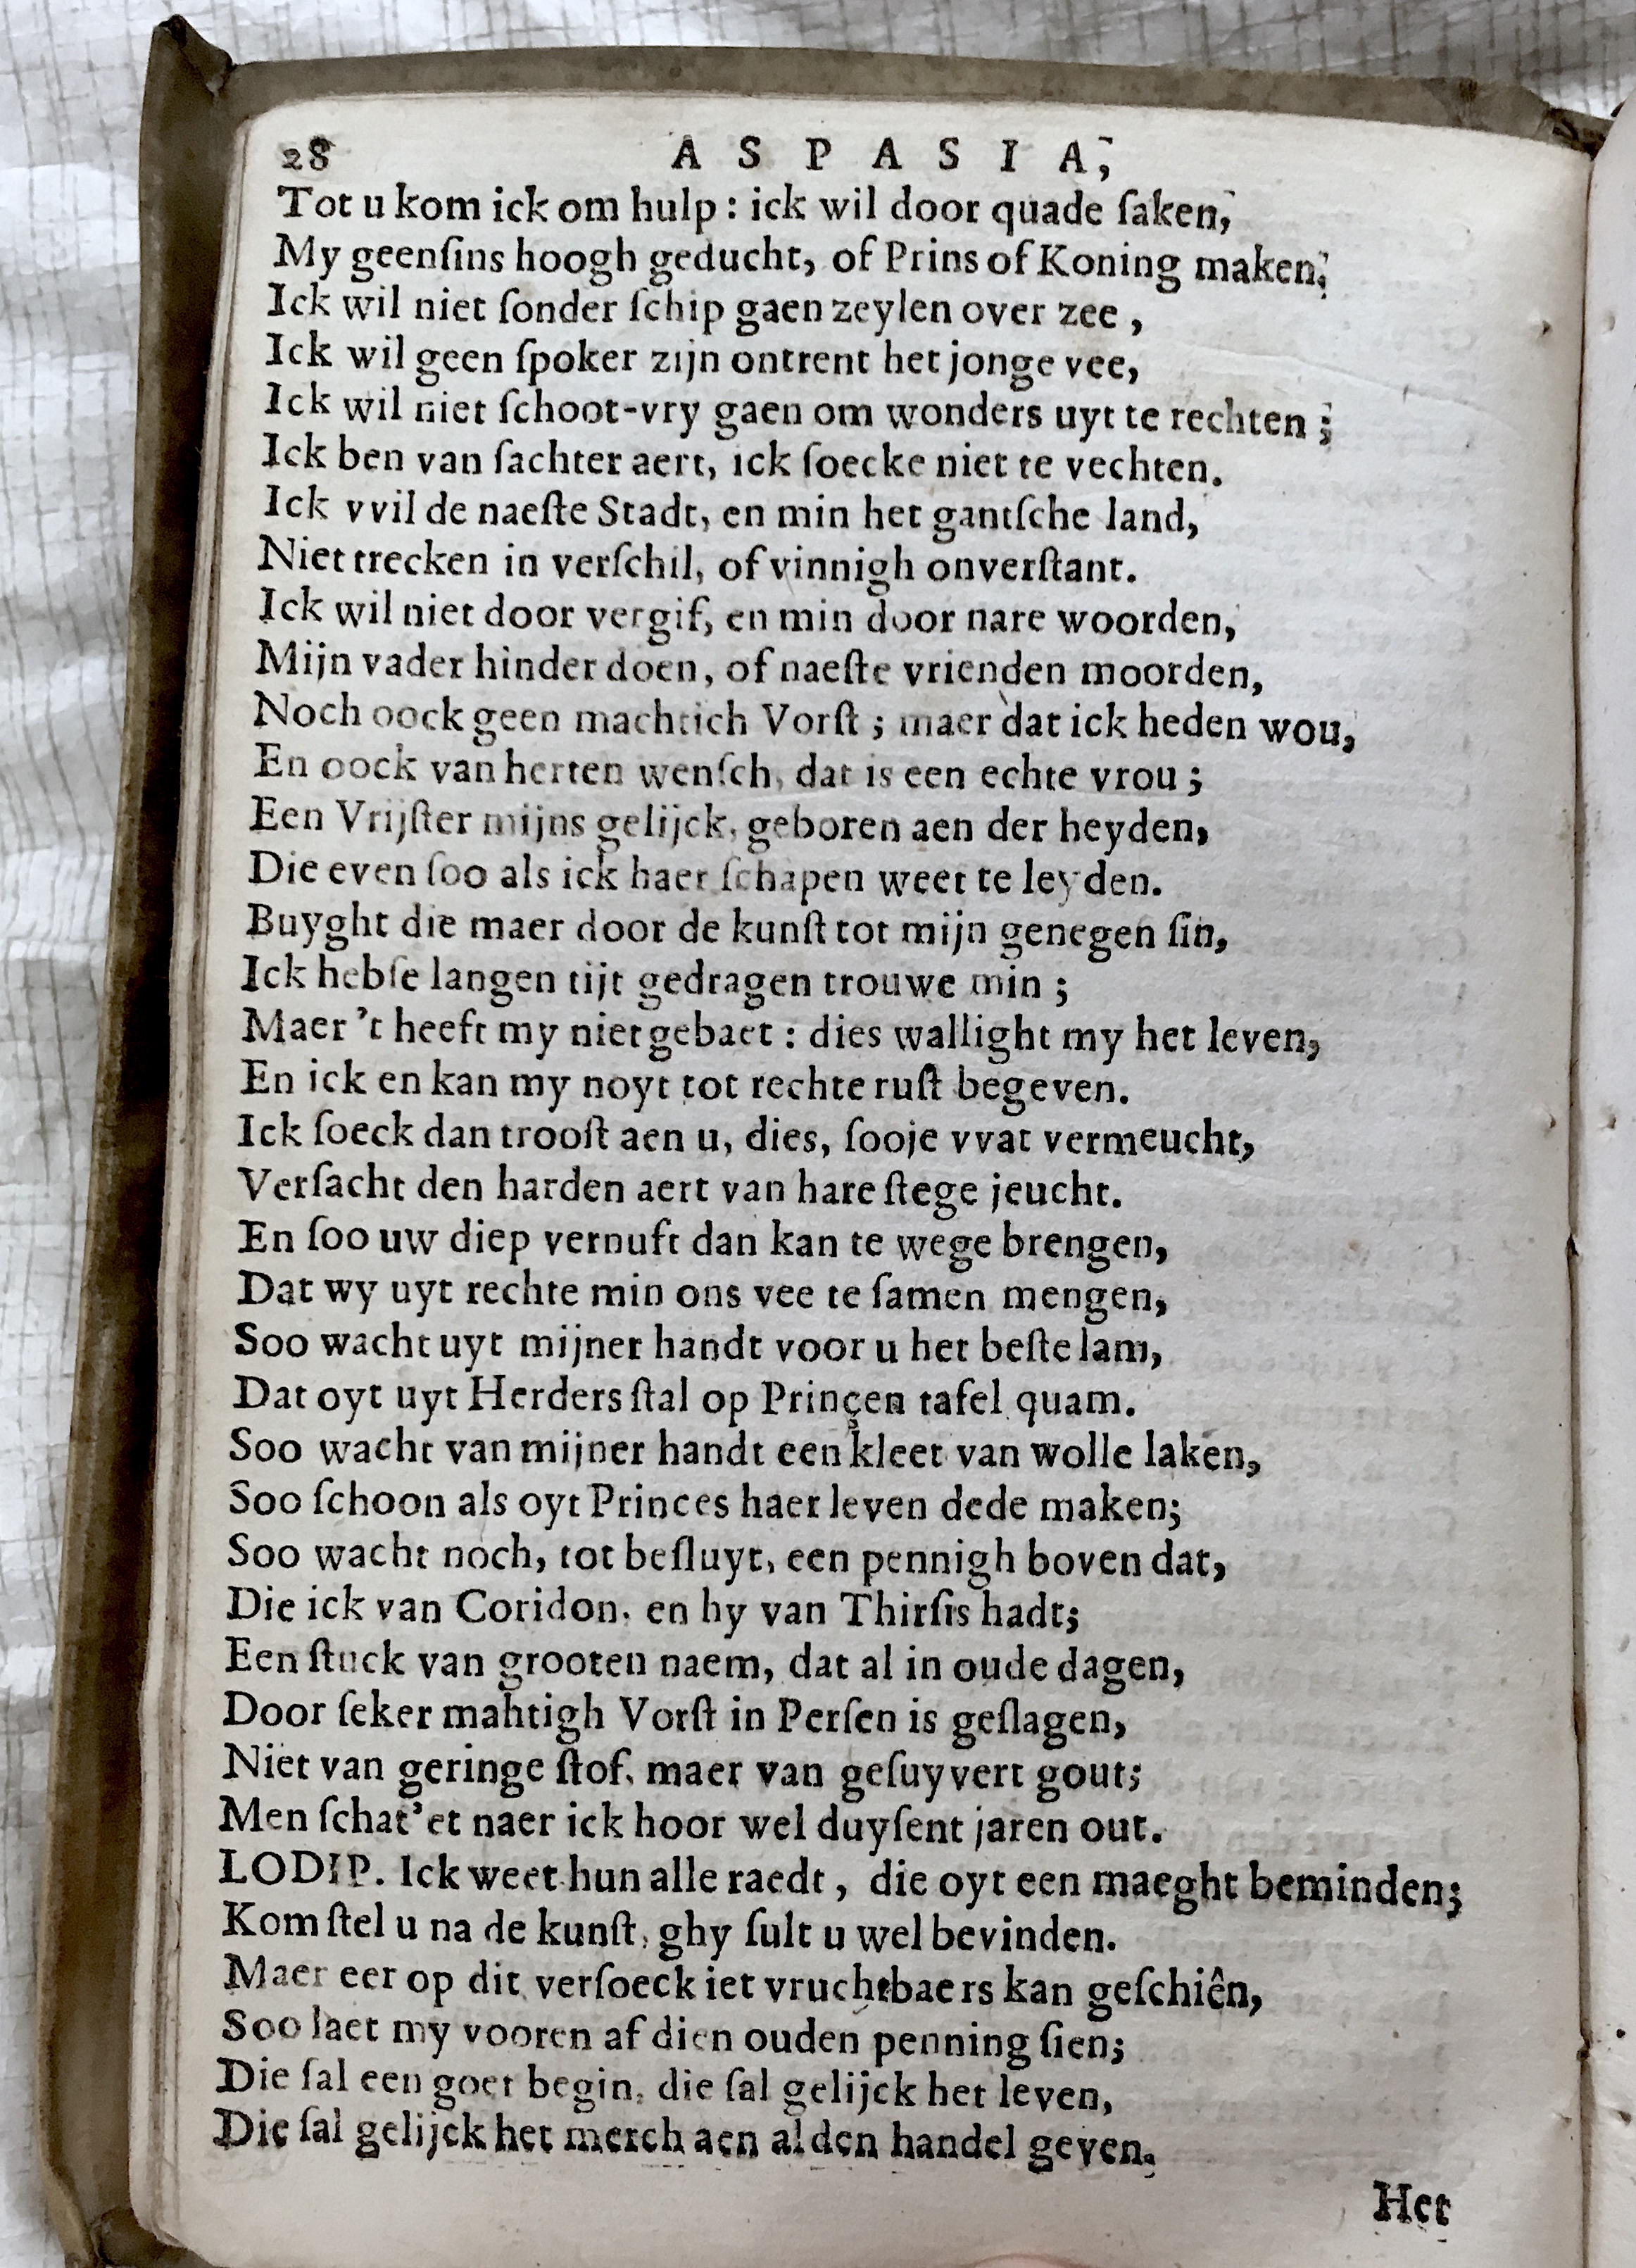 28 ASPASIA,
Tot u kom ick om hulp : ick wil door quade ſaken,
My geenſins hoogh geducht, of Prins of Koning maken;
Ick wil niet ſonder ſchip gaen zeylen over zee ,
Ick wil geen ſpoker zijn ontrent het jonge vee,
Ick wil niet ſchoot-vry gaen om wonders uyt te rechten ;
Ick ben van ſachter aert, ick ſoecke niet te vechten.
Ick vvil de naeſte Stadt, en min het gantſche land,
Niet trecken in verſchil, of vinnigh onverſtant.
Ick wil niet door vergif, en min door nare woorden,
Mijn vader hinder doen, of naeſte vrienden moorden,
Noch oock geen machtich Vorſt ; maer dat ick heden wou,
En oock van herten wenſch, dat is een echte vrou ;
Een Vrijſter mijns gelijck, geboren aen der heyden,
Die even ſoo als ick haer ſchapen weet te leyden.
Buyght die maer door de kunſt tot mijn genegen ſin,
Ick hebſe langen tijt gedragen trouwe min ;
Maer 't heeft my niet gebaet : dies wallight my het leven,
En ick en kan my noyt tot rechte ruſt begeven.
Ick ſoeck dan trooſt aen u, dies, ſooje vvat vermeucht,
Verſacht den harden aert van hare ſtege jeucht.
En ſoo uw diep vernuft dan kan te wege brengen,
Dat wy uyt rechte min ons vee te ſamen mengen,
Soo wacht uyt mijner handt voor u het beſte lam,
Dat oyt uyt Herders ſtal op Prinçen tafel quam.
Soo wacht van mijner handt een kleet van wolle laken,
Soo ſchoon als oyt Princes haer leven dede maken;
Soo wacht noch, tot beſluyt, een pennigh boven dat,
Die ick van Coridon. en hy van Thirſis hadt;
Een ſtuck van grooten naem, dat al in oude dagen,
Door ſeker mahtigh Vorſt in Perſen is geſlagen,
Niet van geringe ſtof, maer van geſuyvert gout;
Men ſchat'et naer ick hoor wel duyſent jaren out.
LODIP. Ick weet hun alle raedt , die oyt een maeght beminden;
Kom ſtel u na de kunſt, ghy ſult u wel bevinden.
Maer eer op dit verſoeck iet vruchtbaers kan geſchiên,
Soo laet my vooren af dien ouden penning ſien;
Die ſal een goet begin, die ſal gelijck het leven,
Die ſal gelijck het merch aen al den handel geven.
Het